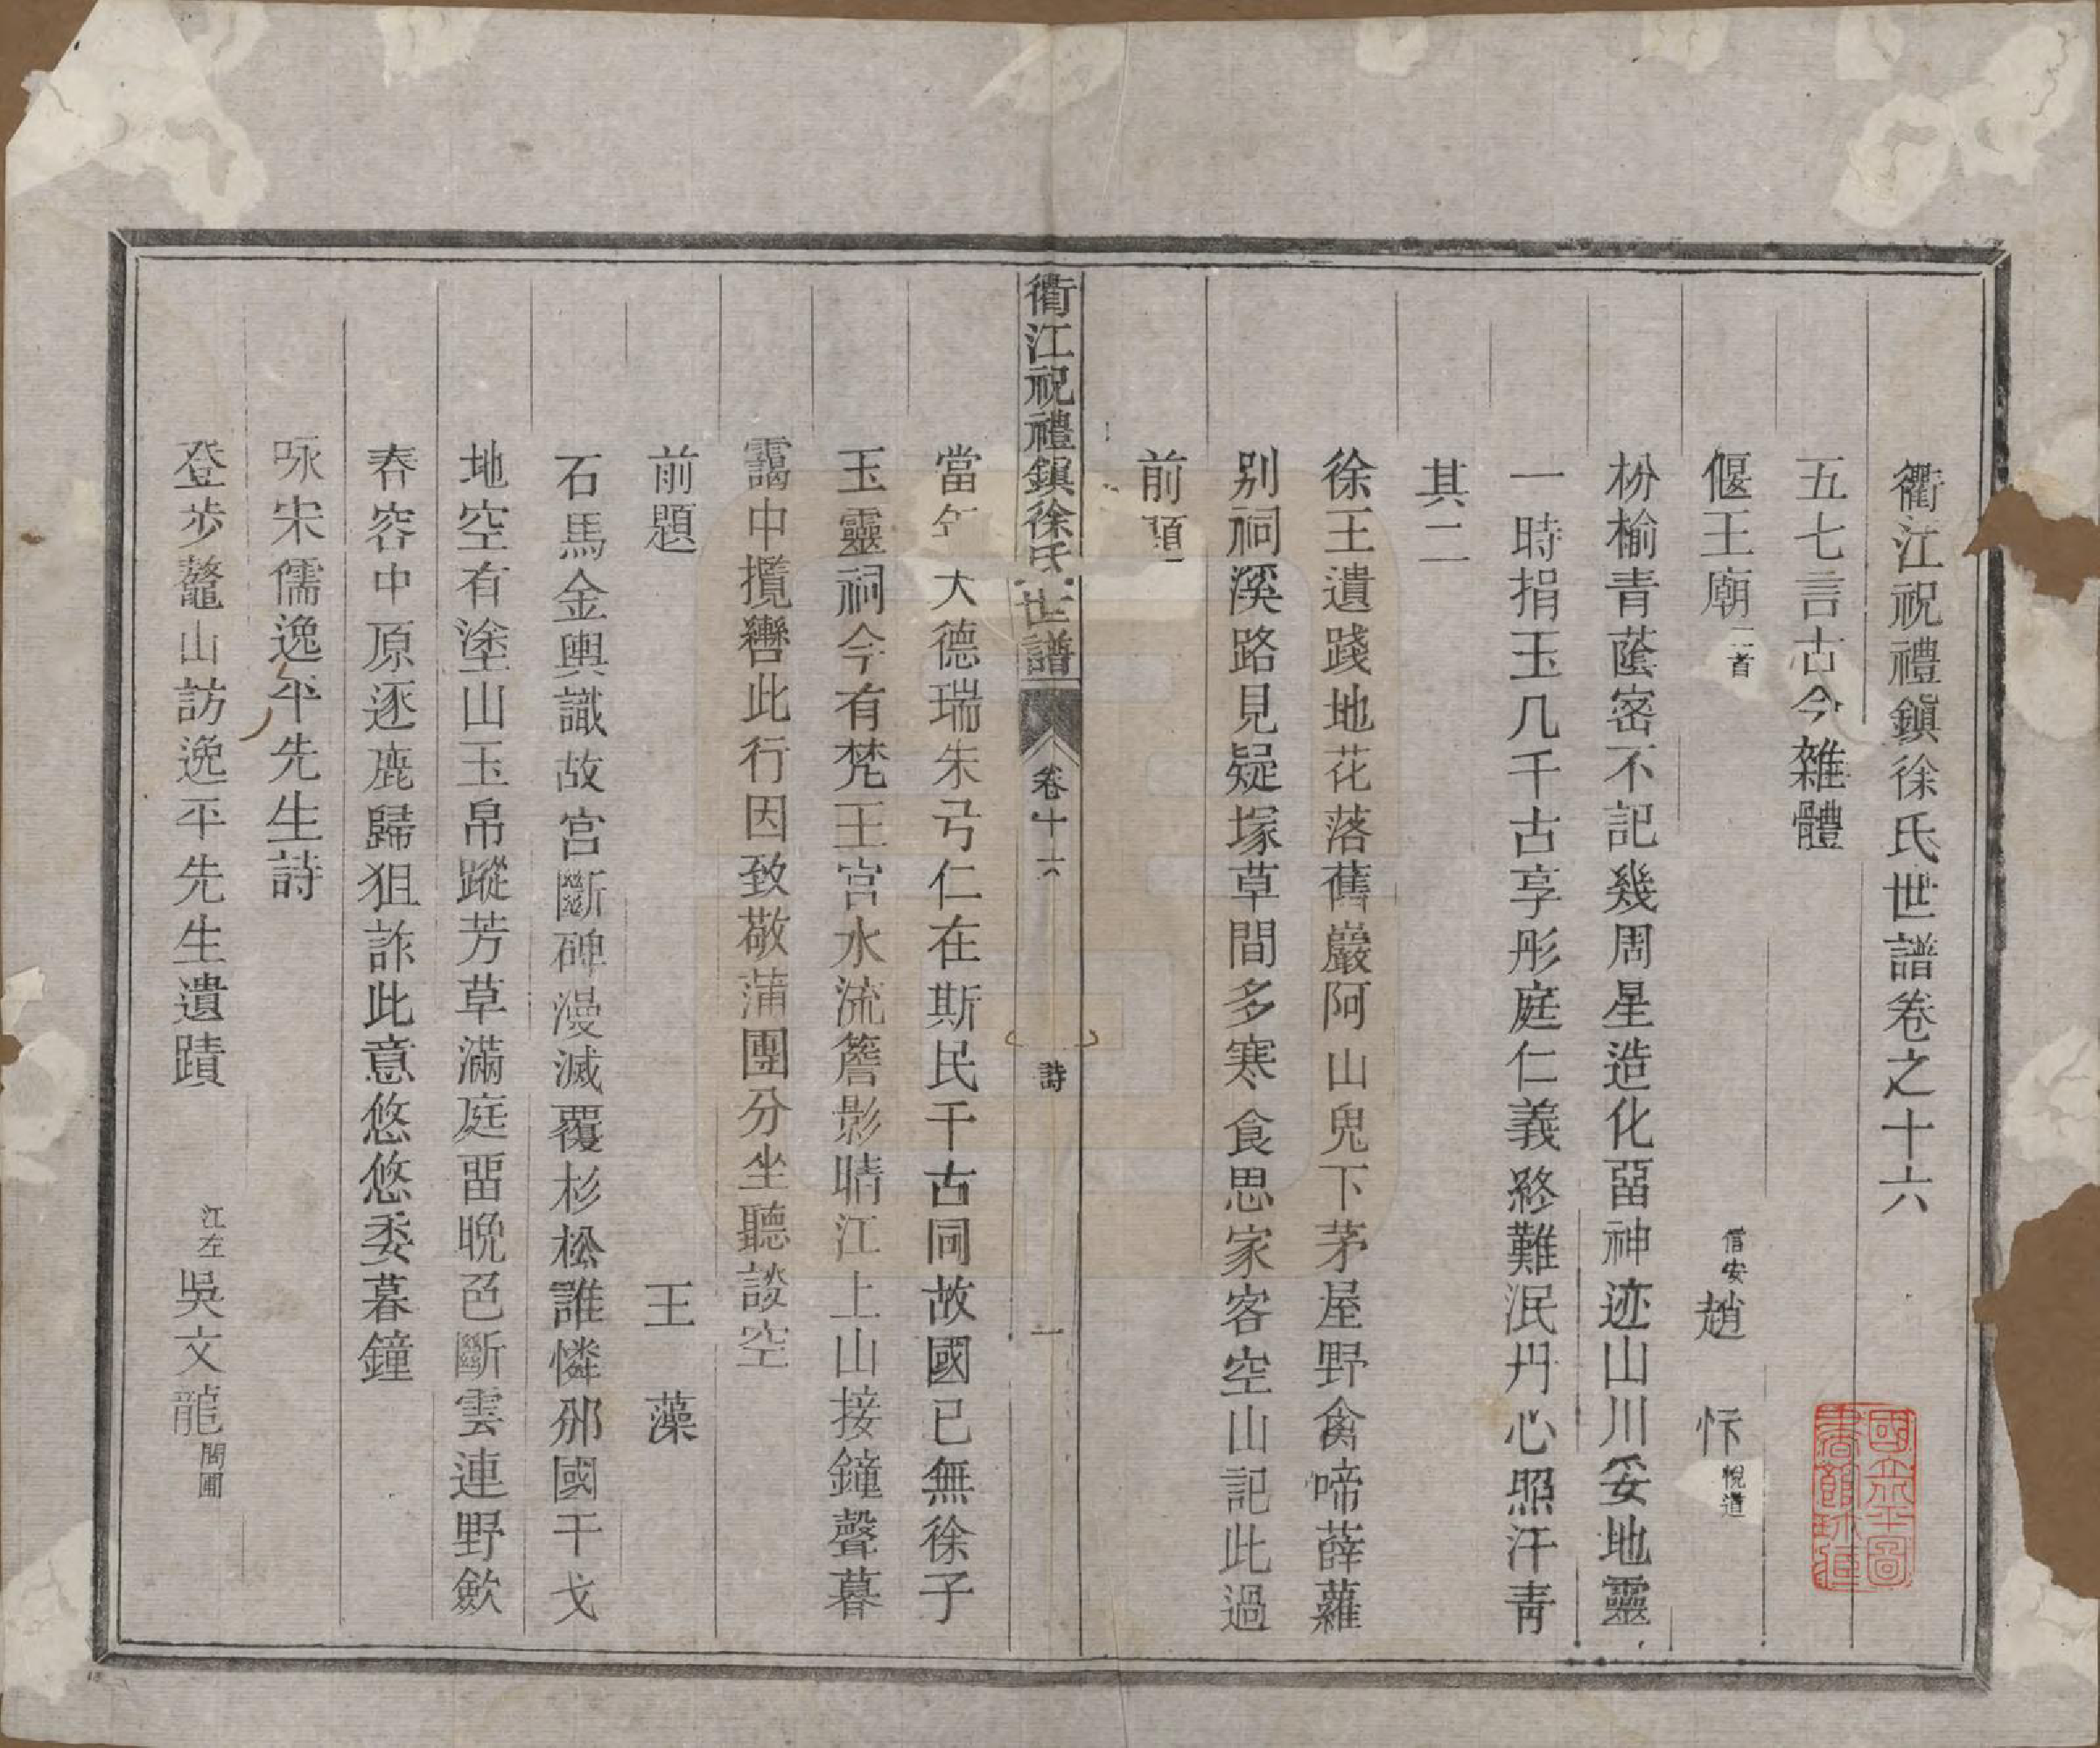 衢江祝禮鎮徐氏世譜卷之十六
五七言古今雜體
偃王廟二首 信安趙忭悅道
枌榆青蔭密不記幾周星造化畱神迹山川妥地靈
一時捐玉几千古享彤庭仁義終難泯丹心照汗青
其二
徐王遺踐地花落舊巖阿山鬼下茅屋野禽啼薜蘿
别祠溪路見疑塚草間多寒食思家客空山記此過
前題
衢江祝禮鎮徐氏世譜 卷十六 詩 一
當年大德瑞朱弓仁在斯民千古同故國已無徐子
玉靈祠今有梵王宮水流簷影晴江上山接鐘聲暮
靄中攬轡此行因致敬蒲團分坐聽談空
前題 王藻
石馬金輿識故宮斷碑漫滅覆杉松誰憐邠國干戈
地空有塗山玉帛蹤芳草滿庭畱晩色斷雲連野歛
春容中原逐鹿歸狙詐此意悠悠委暮鐘
咏宋儒逸平先生詩
登步鼇山訪逸平先生遺蹟 江左吳文龍閬圃
國立北平圖書館珍藏